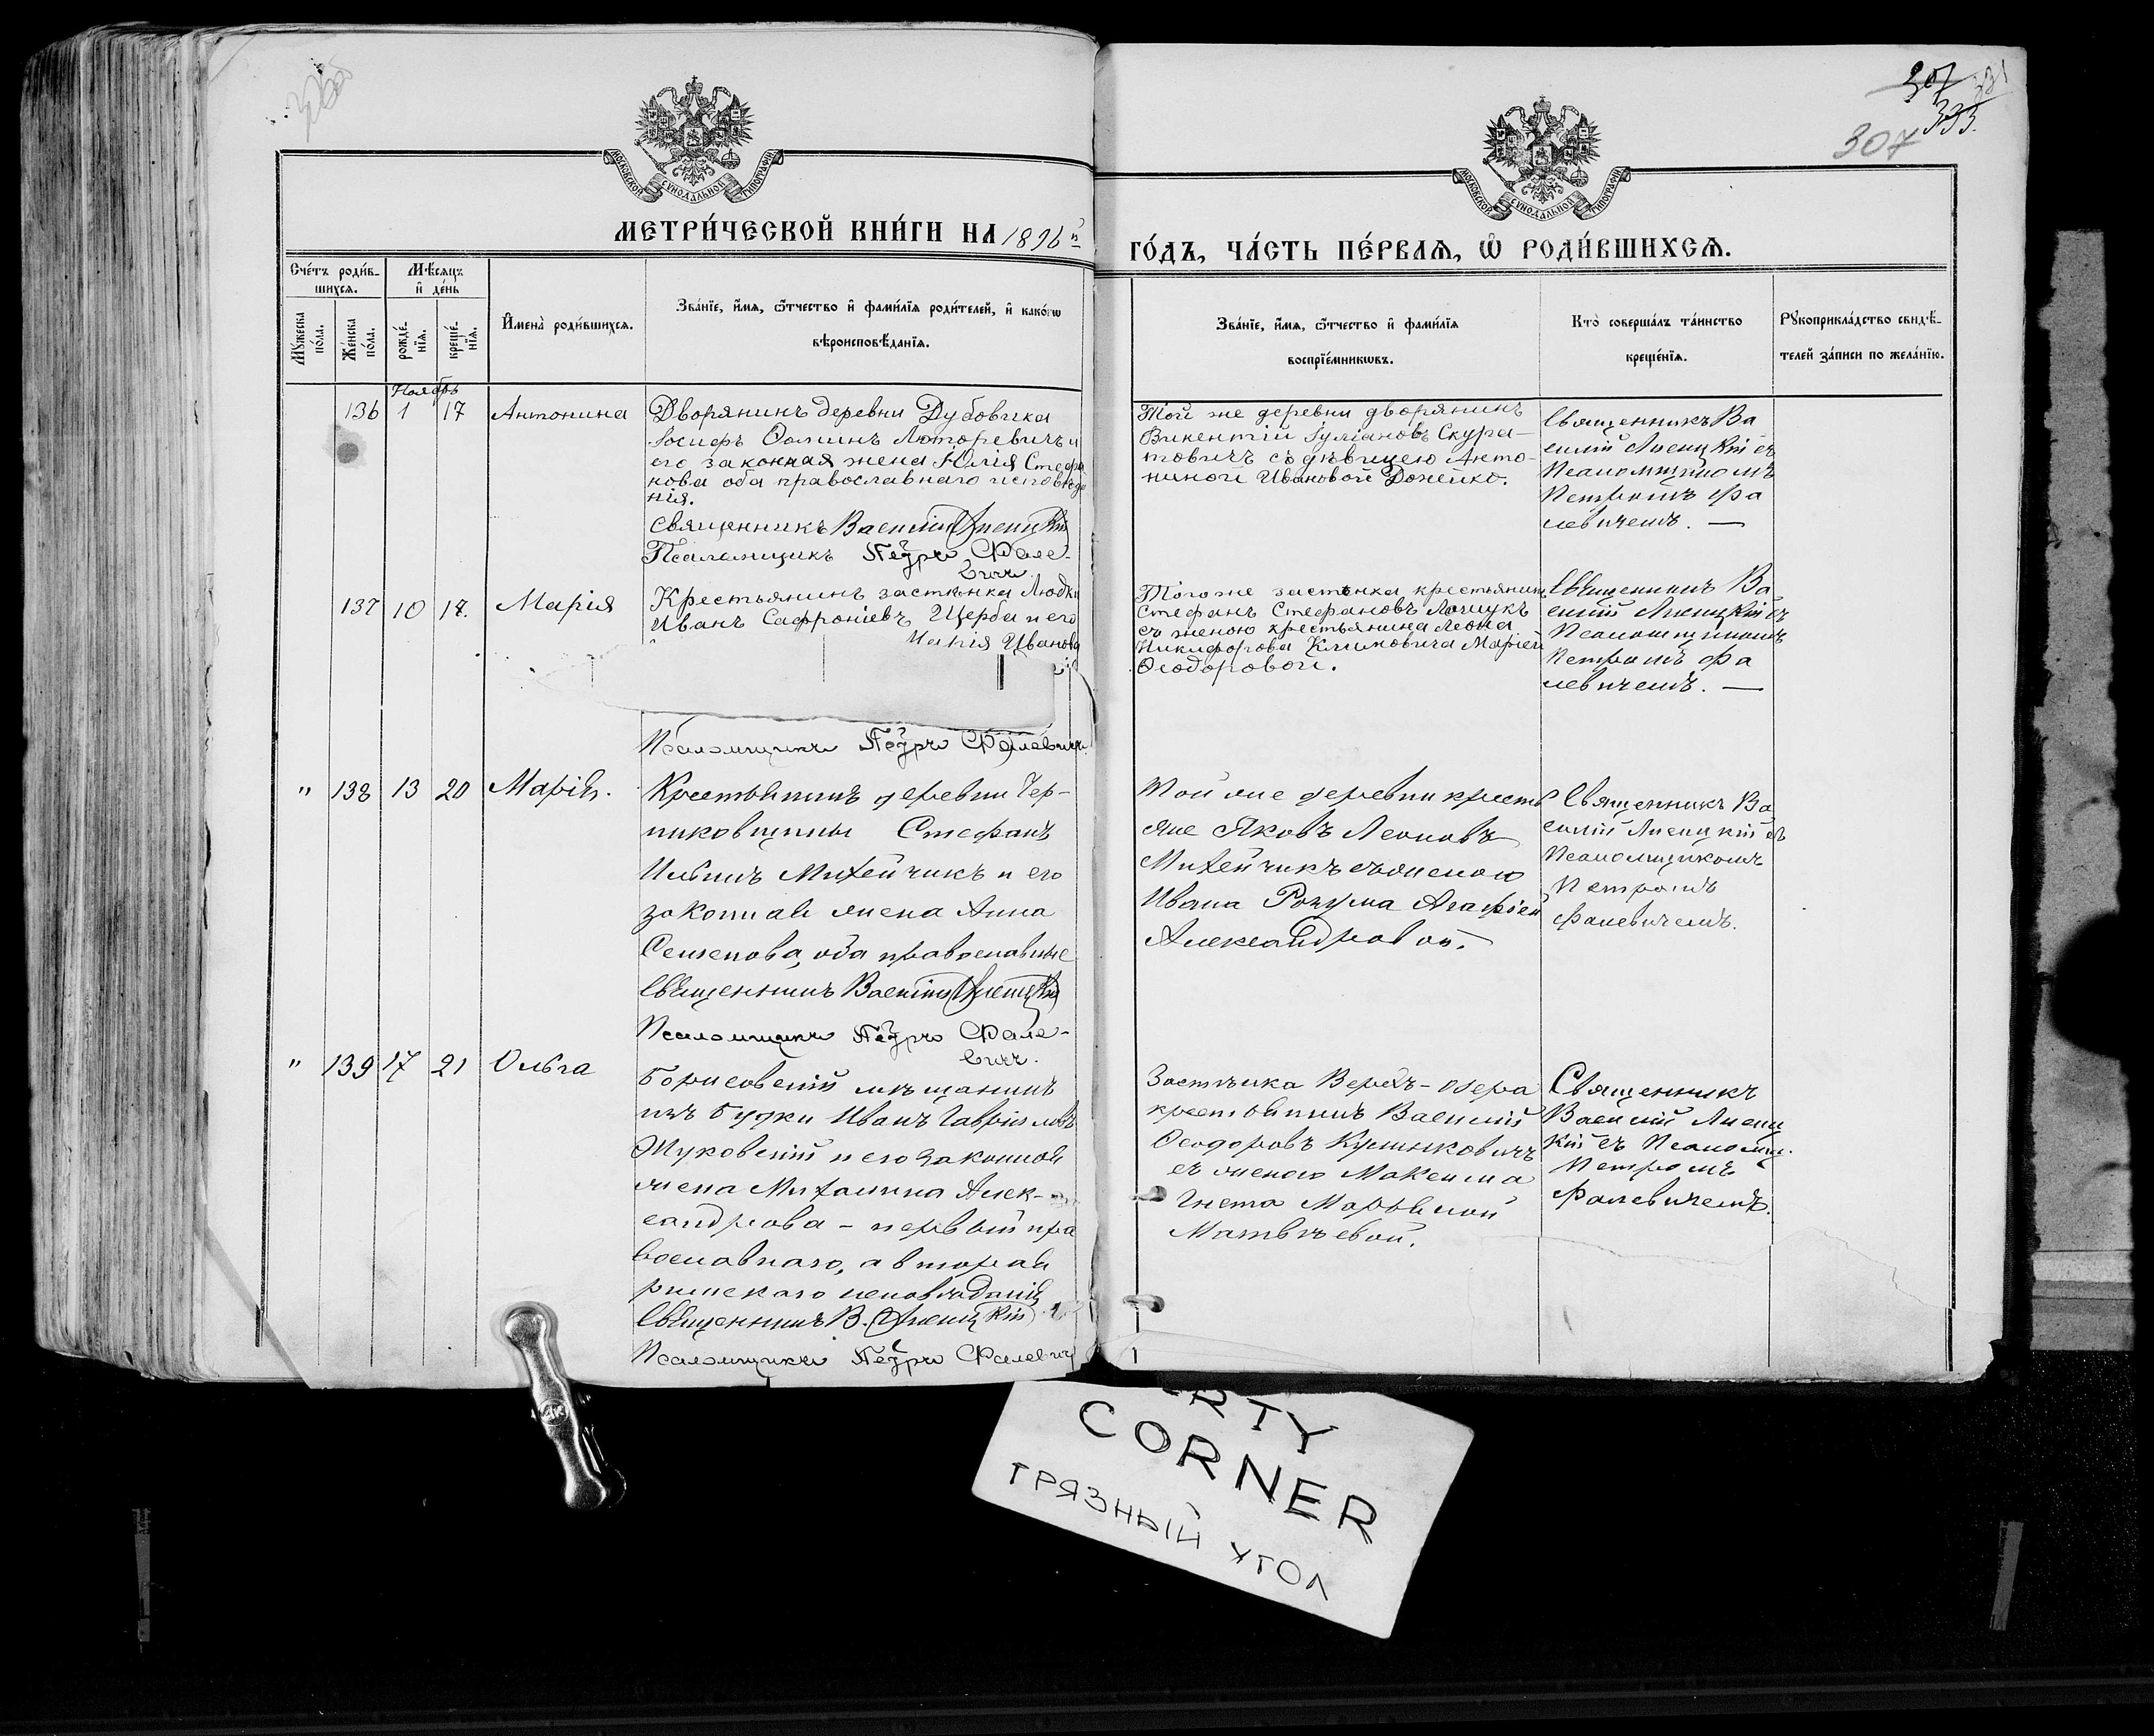 307
333.
307
МОСКОВСКОЙ СѴНОДАЛЬНОЙ ТИПОГРАФІИ
МОСКОВСКОЙ СѴНОДАЛЬНОЙ ТИПОГРАФІИ
МЕТРИ́ЧЕСКОЙ КНИ́ГИ НА 1896й
ГО́ДЪ, ЧА́СТЬ ПЕ́РВАѦ, Ѡ РОДИ́ВШИХСѦ.
Сче́тъ роди́в-
шихсѧ.
Мѣ́сѧцъ
и҆ де́нь
Мꙋ́жеска
по́ла.
Же́нска
по́ла.
рожде́-
нїѧ.
креще́-
нїѧ.
И҆мена̀ роди́вшихсѧ.
Зва́нїе, и҆́мѧ, ѻ҆́тчество и҆ фами́лїѧ роди́телей, и҆ како́гѡ
вѣроисповѣ́данїѧ.
Зва́нїе, и҆́мѧ, ѻ҆́тчество и҆ фами́лїѧ
воспрїе́мникѡвъ.
Кто̀ соверша́лъ та́инство
креще́нїѧ.
Рꙋкоприкла́дство свидѣ́-
телей за́писи по жела́нїю.
Ноябрь
136 1 17 Антонина
Дворянинъ деревни Дубовика
Іосифъ Ѳоминъ Люторевичъ и
его законная жена Юлія Стефа
нова оба православнаго исповѣда
нія.
Священникъ Василій Лисицкій
Псаломщикъ Петръ Фале-
вичъ.
Той же деревни дворянинъ
Викентій Іуліановъ Скура-
товичъ съ дѣвицею Анто-
ниной Ивановой Донейко.
Священникъ Ва
силій Лисицкій съ
Псаломщикомъ
Петромъ Фа
левичемъ. —
137 10 17. Марія
Крестьянинъ застѣнка Людки
Иванъ Сафроніевъ Щерба и его
Иванова
Псаломщикъ Петръ Фалевичъ
Того же застѣнка крестьянинъ
Стефанъ Стефановъ Лащукъ
съ женою крестьянина Леона
Никифорова Климовича Маріей
Ѳеодоровой.
Священникъ Ва
силій Лисицкій съ
Псаломщикомъ
Петромъ Фа
левичемъ. —
" 138 13 20 Марія.
Крестьянинъ деревни Чер-
никовщины Стефанъ
Ильинъ Михейчикъ и его
законная жена Анна
Семенова, оба православные
Священникъ Василій Лисицкій
Псаломщикъ Петръ Фале-
вичъ.
Той же деревни кресть
яне Яковъ Леоновъ
Михейчикъ съ женою
Ивана Рокума Агафіей
Александровой.
Священникъ Ва
силій Лисицкій съ
Псаломщикомъ
Петромъ
Фалевичемъ.
" 139 17 21 Ольга
Борисовскій мѣщанинъ
изъ Будки Иванъ Гавріиловъ
Жуковскій и его законная
жена Михалина Алек-
сандрова - первый пра
вославнаго, а вторая
римскаго исповѣданія
Священникъ В. Лисицкій
Псаломщикъ Петръ Фалевичъ
Застѣнка Верхъ-озера
крестьянинъ Василій
Ѳеодоровъ
съ женою Максима
Марьяной
Матвѣевой.
Священникъ
Василій Лисиц
кій съ Псаломщ.
Петромъ
Фалевичемъ.
RTY
CORNER
ГРЯЗНЫЙ УГОЛ